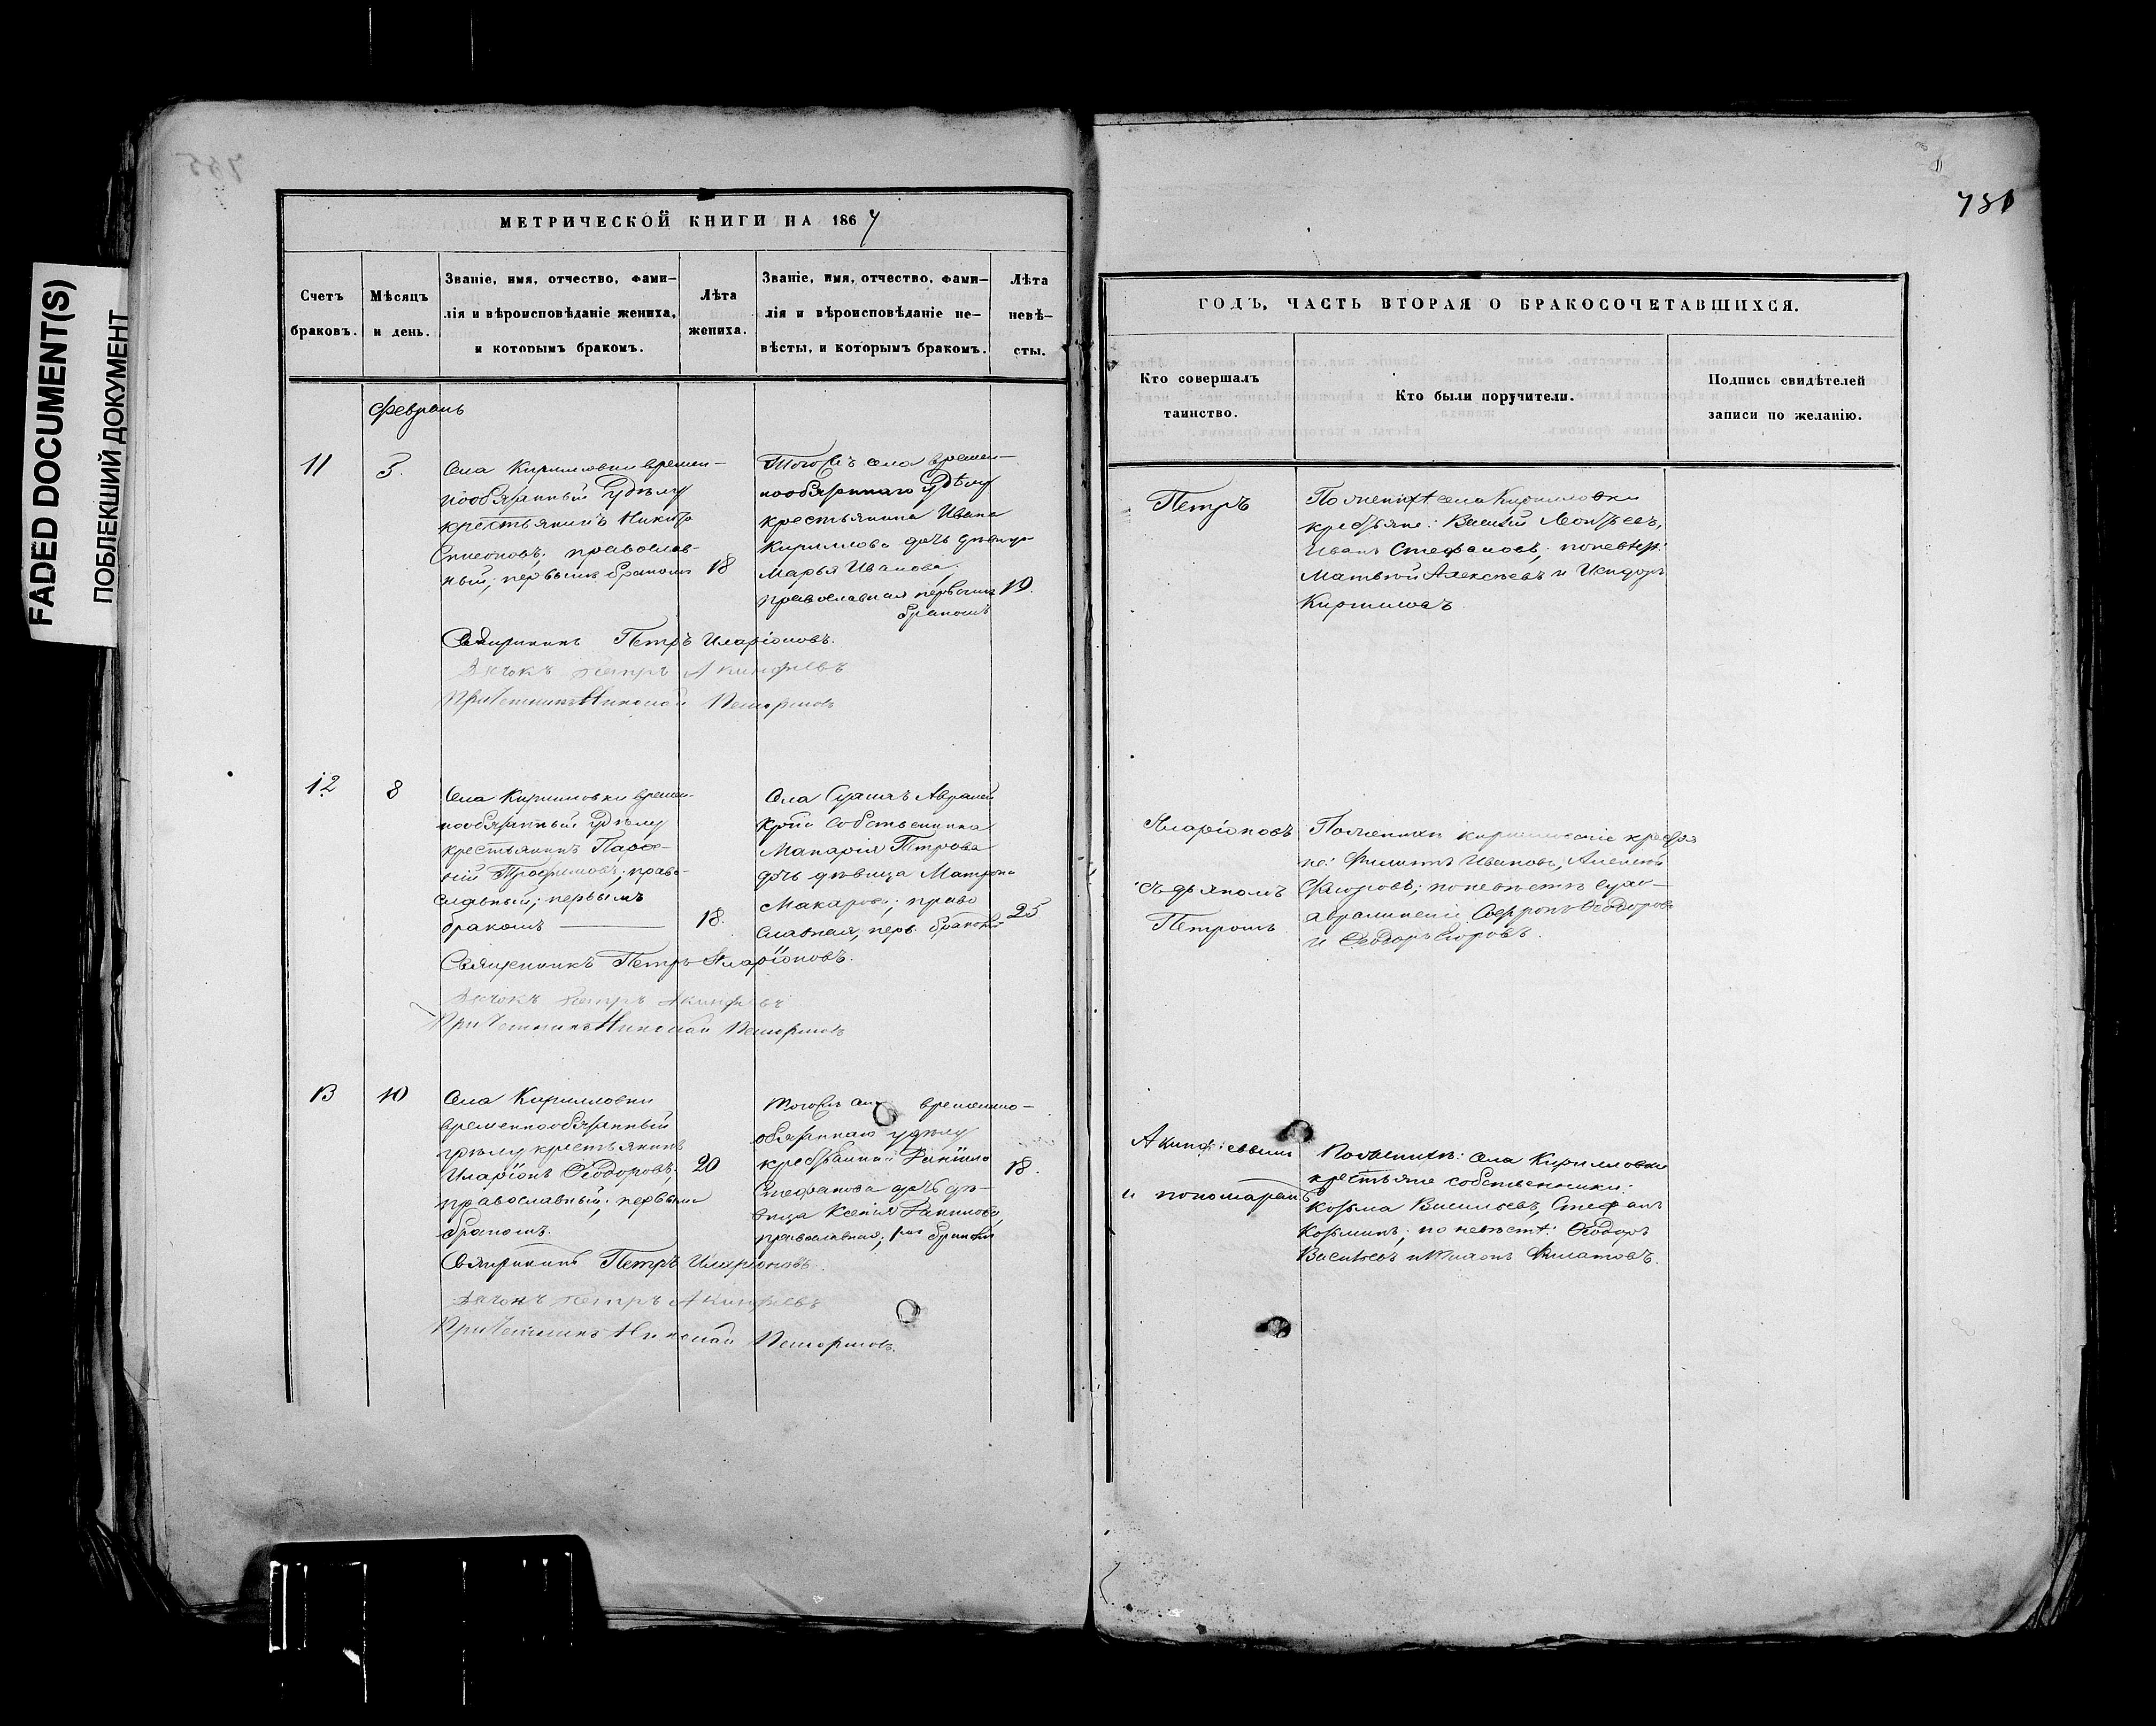 FADED DOCUMENT(S)
ПОБЛЕКШИЙ ДОКУМЕНТ
МЕТРИЧЕСКОЙ КНИГИ НА 1867
Счетъ
браковъ.
Мѣсяцъ
и день.
Званіе, имя, отчество, фами-
лія и вѣроисповѣданіе жениха,
и которымъ бракомъ.
Лѣта
жениха.
Званіе, имя, отчество, фами-
лія и вѣроисповѣданіе не-
вѣсты, и которымъ бракомъ.
Лѣта
невѣ-
сты.
Февраль
11
3.
Села Кирилловки времен-
нообязанный Удѣлу
крестьянинъ
Симеоновъ; православ-
ный; первымъ бракомъ
18
Тогожъ села времен-
нообязаннаго Удѣлу
крестьянина Ивана
Кириллова дочь дѣвица
Марья Иванова
православная первымъ
бракомъ
19.
Священникъ Петръ Иларіоновъ.
Дьячокъ Петръ Акинфіевъ
Причетникъ Николай
12
8
Села Кирилловки времен-
нообязанный Удѣлу
крестьянинъ
Трофимовъ; право-
славный; первымъ
бракомъ
18.
Села
собственника
Макарія Петрова
дочь дѣвица Матрона
Макарова; право
славная, перв. бракомъ
25
Священникъ Петръ Иларіоновъ.
Дьячокъ Петръ Акинфіевъ
Причетникъ Николай
13
10
Села Кирилловки
временнообязанный
удѣлу крестьянинъ
Иларіонъ Ѳеодоровъ;
православный; первымъ
бракомъ.
20
Тогожъ села временно-
обязаннаго удѣлу
Стефанова дочь дѣ-
вица Ксенія
православная; бракомъ
18.
Священникъ Петръ Иларіоновъ.
Дьячокъ Петръ Акинфіевъ
Причетникъ Николай
ГОДЪ, ЧАСТЬ ВТОРАЯ О БРАКОСОЧЕТАВШИХСЯ.
Кто совершалъ
таинство.
Кто были поручители.
Подпись свидѣтелей
записи по желанію.
Петръ
Иларіоновъ
съ дьякомъ
Петромъ
Акинфіевымъ
и пономаремъ
По женихѣ села Кирилловки
крестьяне: Василій Леонтьевъ,
Иванъ Стефановъ; по невѣстѣ:
Матвѣй Алексѣевъ и Исидоръ
Кирилловъ
По женихѣ кирилловскіе крестья
не: Филиппъ Ивановъ, Алексѣй
по невѣстѣ
Ѳеодоровъ
По женихѣ: села Кирилловки
крестьяне собственники:
Козьма Васильевъ, Стефанъ
Козьминъ; по невѣстѣ: Ѳеодоръ
Васильевъ и Филатовъ.